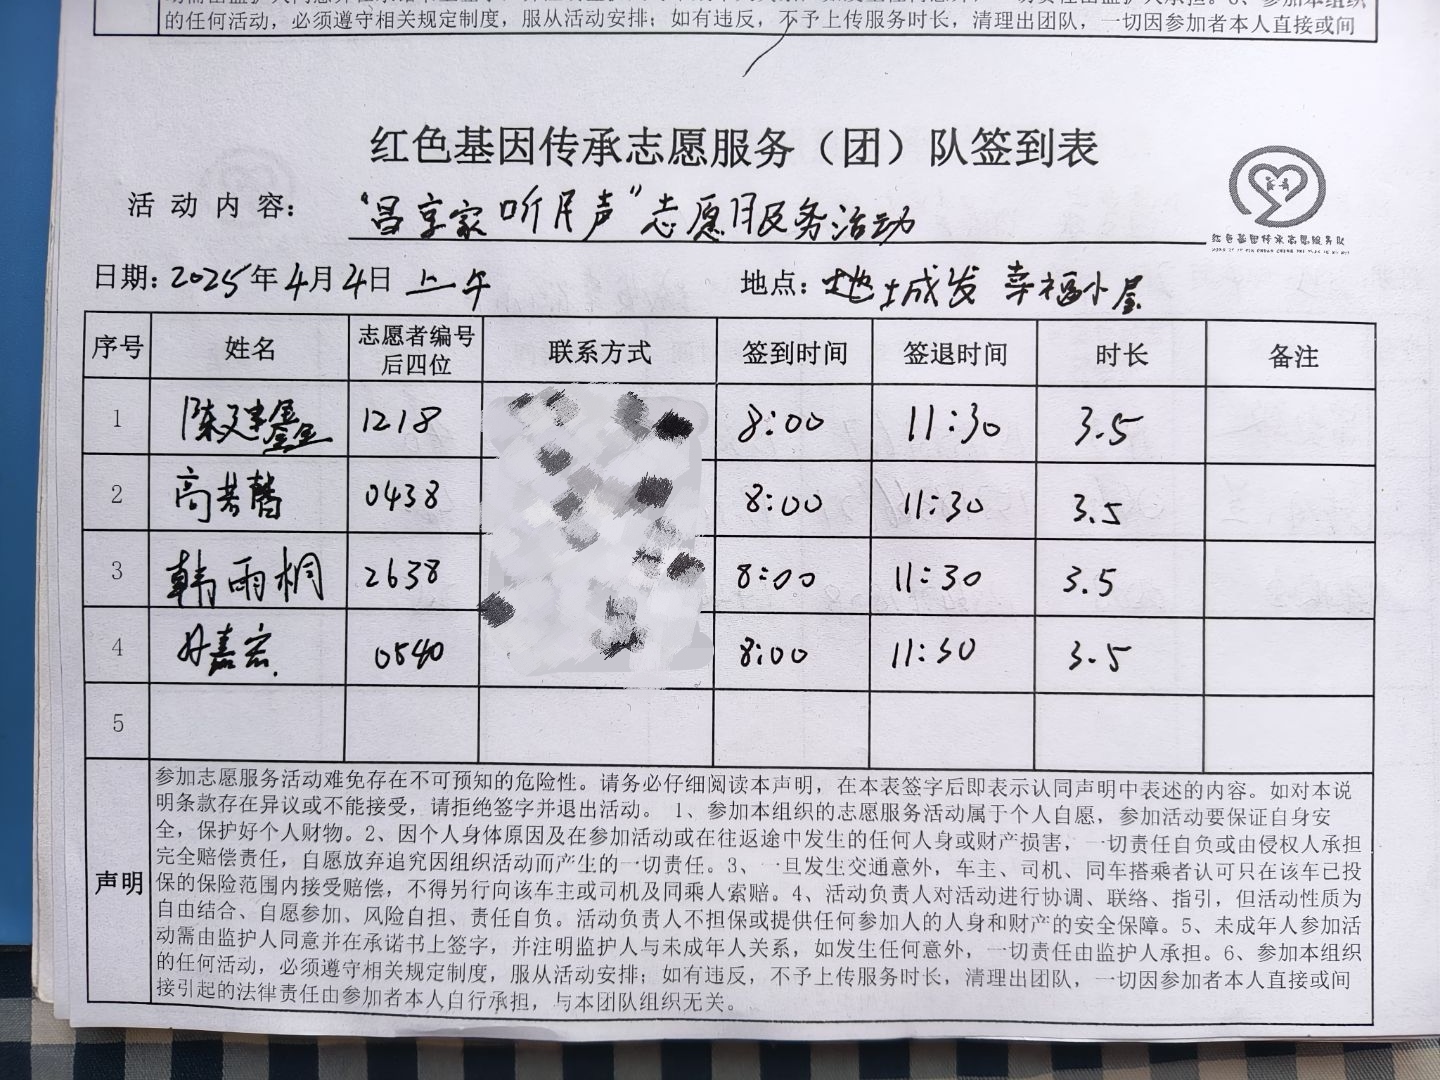 的任何活动，必须遵守相关规定制度，服从活动安排；如有违反，不予上传服务时长，清理出团队，一切因参加者本人直接或间
红色基因传承志愿服务（团）队签到表
活动内容：“昌享家 听民声”志愿服务活动
红色基因传承志愿服务队
日期：2025年4月4日 上午 地点：地土城发 幸福小屋
序号 姓名 志愿者编号后四位 联系方式 签到时间 签退时间 时长 备注
1 陈建鑫 1218 8:00 11:30 3.5
2 高若馨 0438 8:00 11:30 3.5
3 韩雨桐 2638 8:00 11:30 3.5
4 嘉宏 0540 8:00 11:30 3.5
5
声明
参加志愿服务活动难免存在不可预知的危险性。请务必仔细阅读本声明，在本表签字后即表示认同声明中表述的内容。如对本说
明条款存在异议或不能接受，请拒绝签字并退出活动。 1、参加本组织的志愿服务活动属于个人自愿，参加活动要保证自身安
全，保护好个人财物。2、因个人身体原因及在参加活动或在往返途中发生的任何人身或财产损害，一切责任自负或由侵权人承担
完全赔偿责任，自愿放弃追究因组织活动而产生的一切责任。3、一旦发生交通意外，车主、司机、同车搭乘者认可只在该车已投
保的保险范围内接受赔偿，不得另行向该车主或司机及同乘人索赔。4、活动负责人对活动进行协调、联络、指引，但活动性质为
自由结合、自愿参加、风险自担、责任自负。活动负责人不担保或提供任何参加人的人身和财产的安全保障。5、未成年人参加活
动需由监护人同意并在承诺书上签字，并注明监护人与未成年人关系，如发生任何意外，一切责任由监护人承担。6、参加本组织
的任何活动，必须遵守相关规定制度，服从活动安排；如有违反，不予上传服务时长，清理出团队，一切因参加者本人直接或间
接引起的法律责任由参加者本人自行承担，与本团队组织无关。